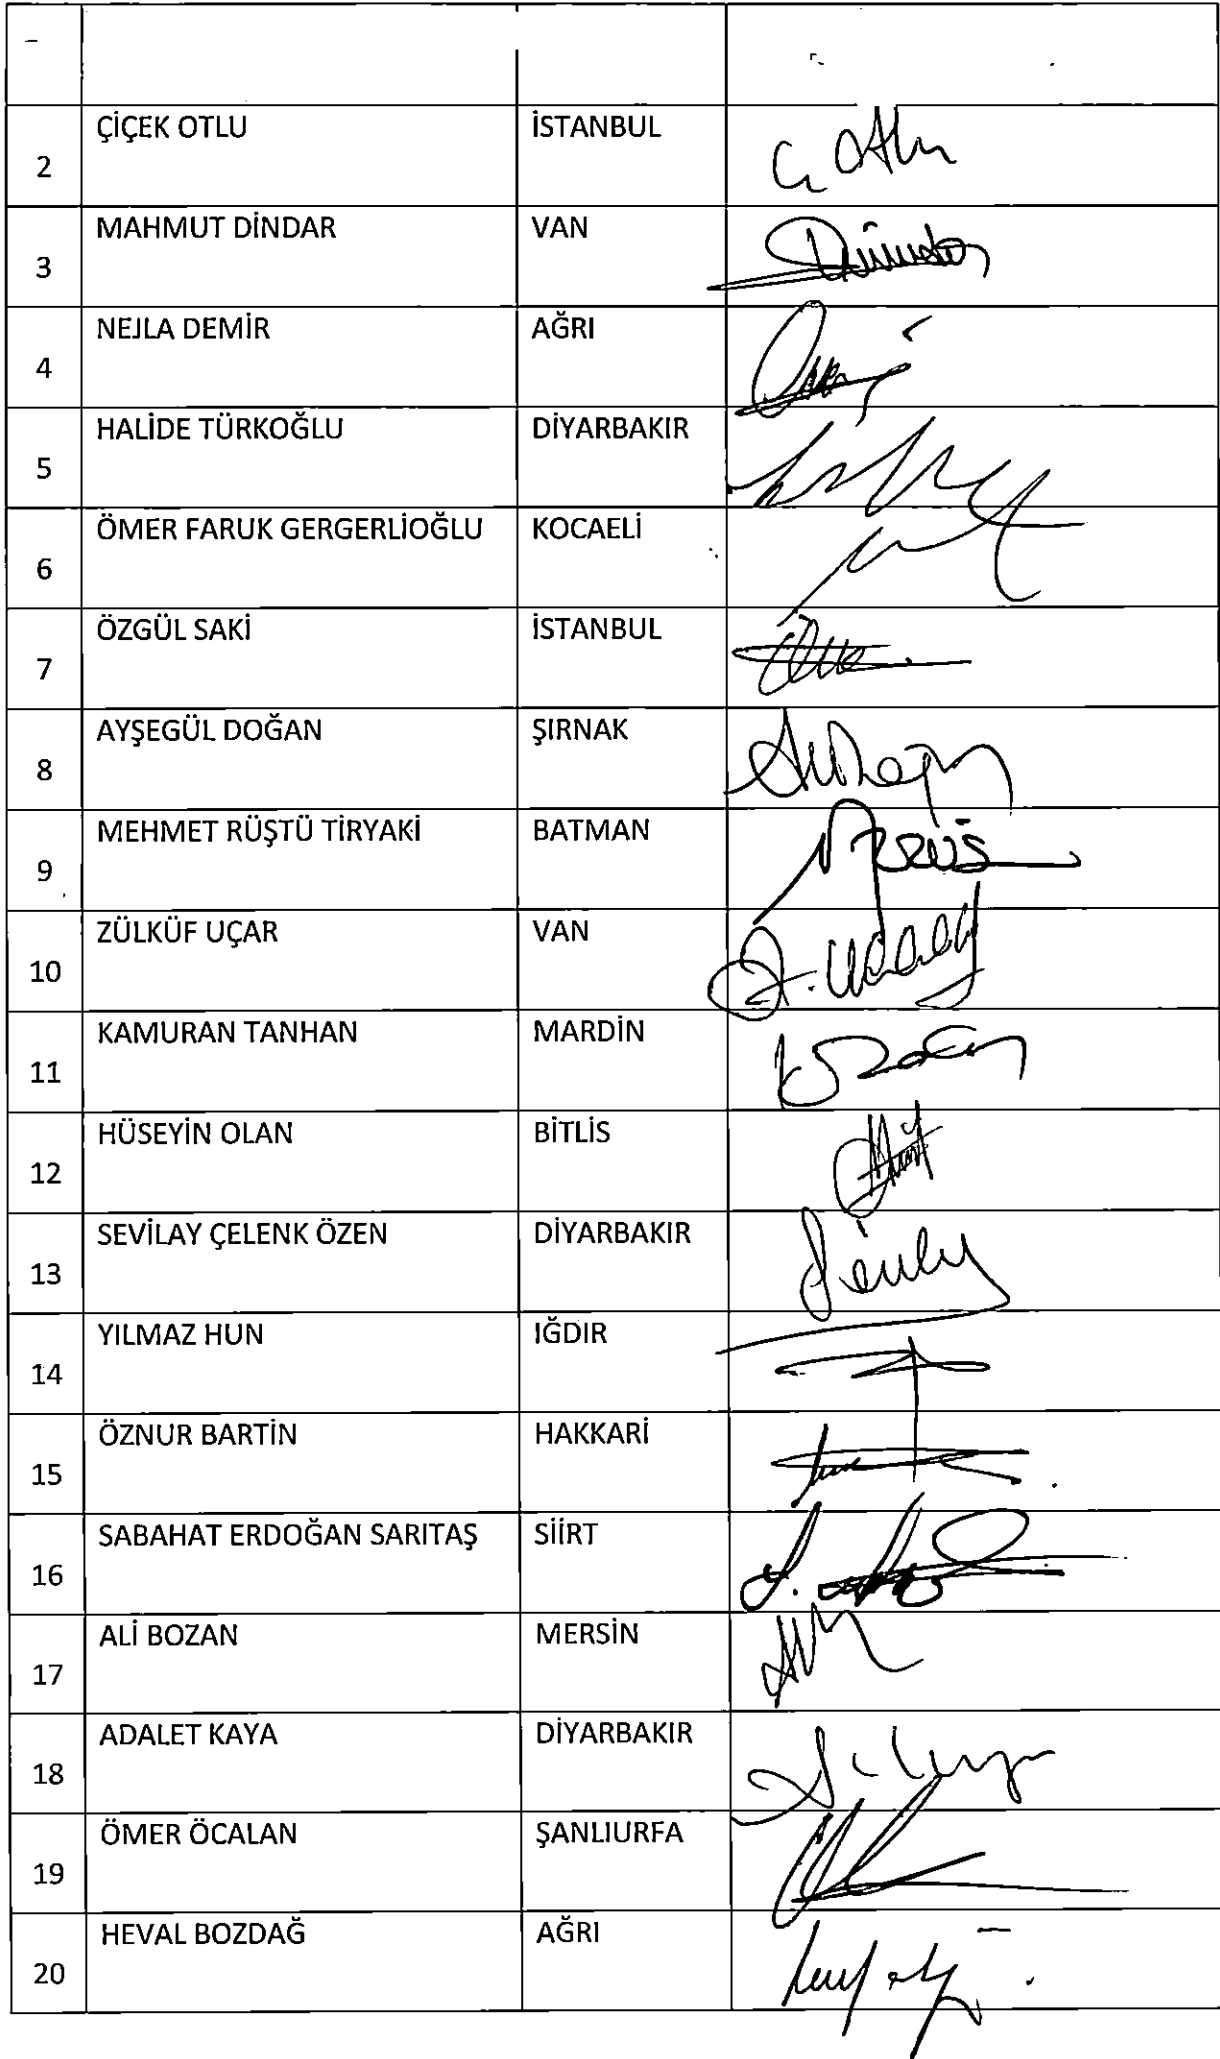 2 ÇİÇEK OTLU İSTANBUL
3 MAHMUT DİNDAR VAN
4 NEJLA DEMİR AĞRI
5 HALİDE TÜRKOĞLU DİYARBAKIR
6 ÖMER FARUK GERGERLİOĞLU KOCAELİ
7 ÖZGÜL SAKİ İSTANBUL
8 AYŞEGÜL DOĞAN ŞIRNAK
9 MEHMET RÜŞTÜ TİRYAKİ BATMAN
10 ZÜLKÜF UÇAR VAN
11 KAMURAN TANHAN MARDİN
12 HÜSEYİN OLAN BİTLİS
13 SEVİLAY ÇELENK ÖZEN DİYARBAKIR
14 YILMAZ HUN IĞDIR
15 ÖZNUR BARTİN HAKKARİ
16 SABAHAT ERDOĞAN SARITAŞ SİİRT
17 ALİ BOZAN MERSİN
18 ADALET KAYA DİYARBAKIR
19 ÖMER ÖCALAN ŞANLIURFA
20 HEVAL BOZDAĞ AĞRI